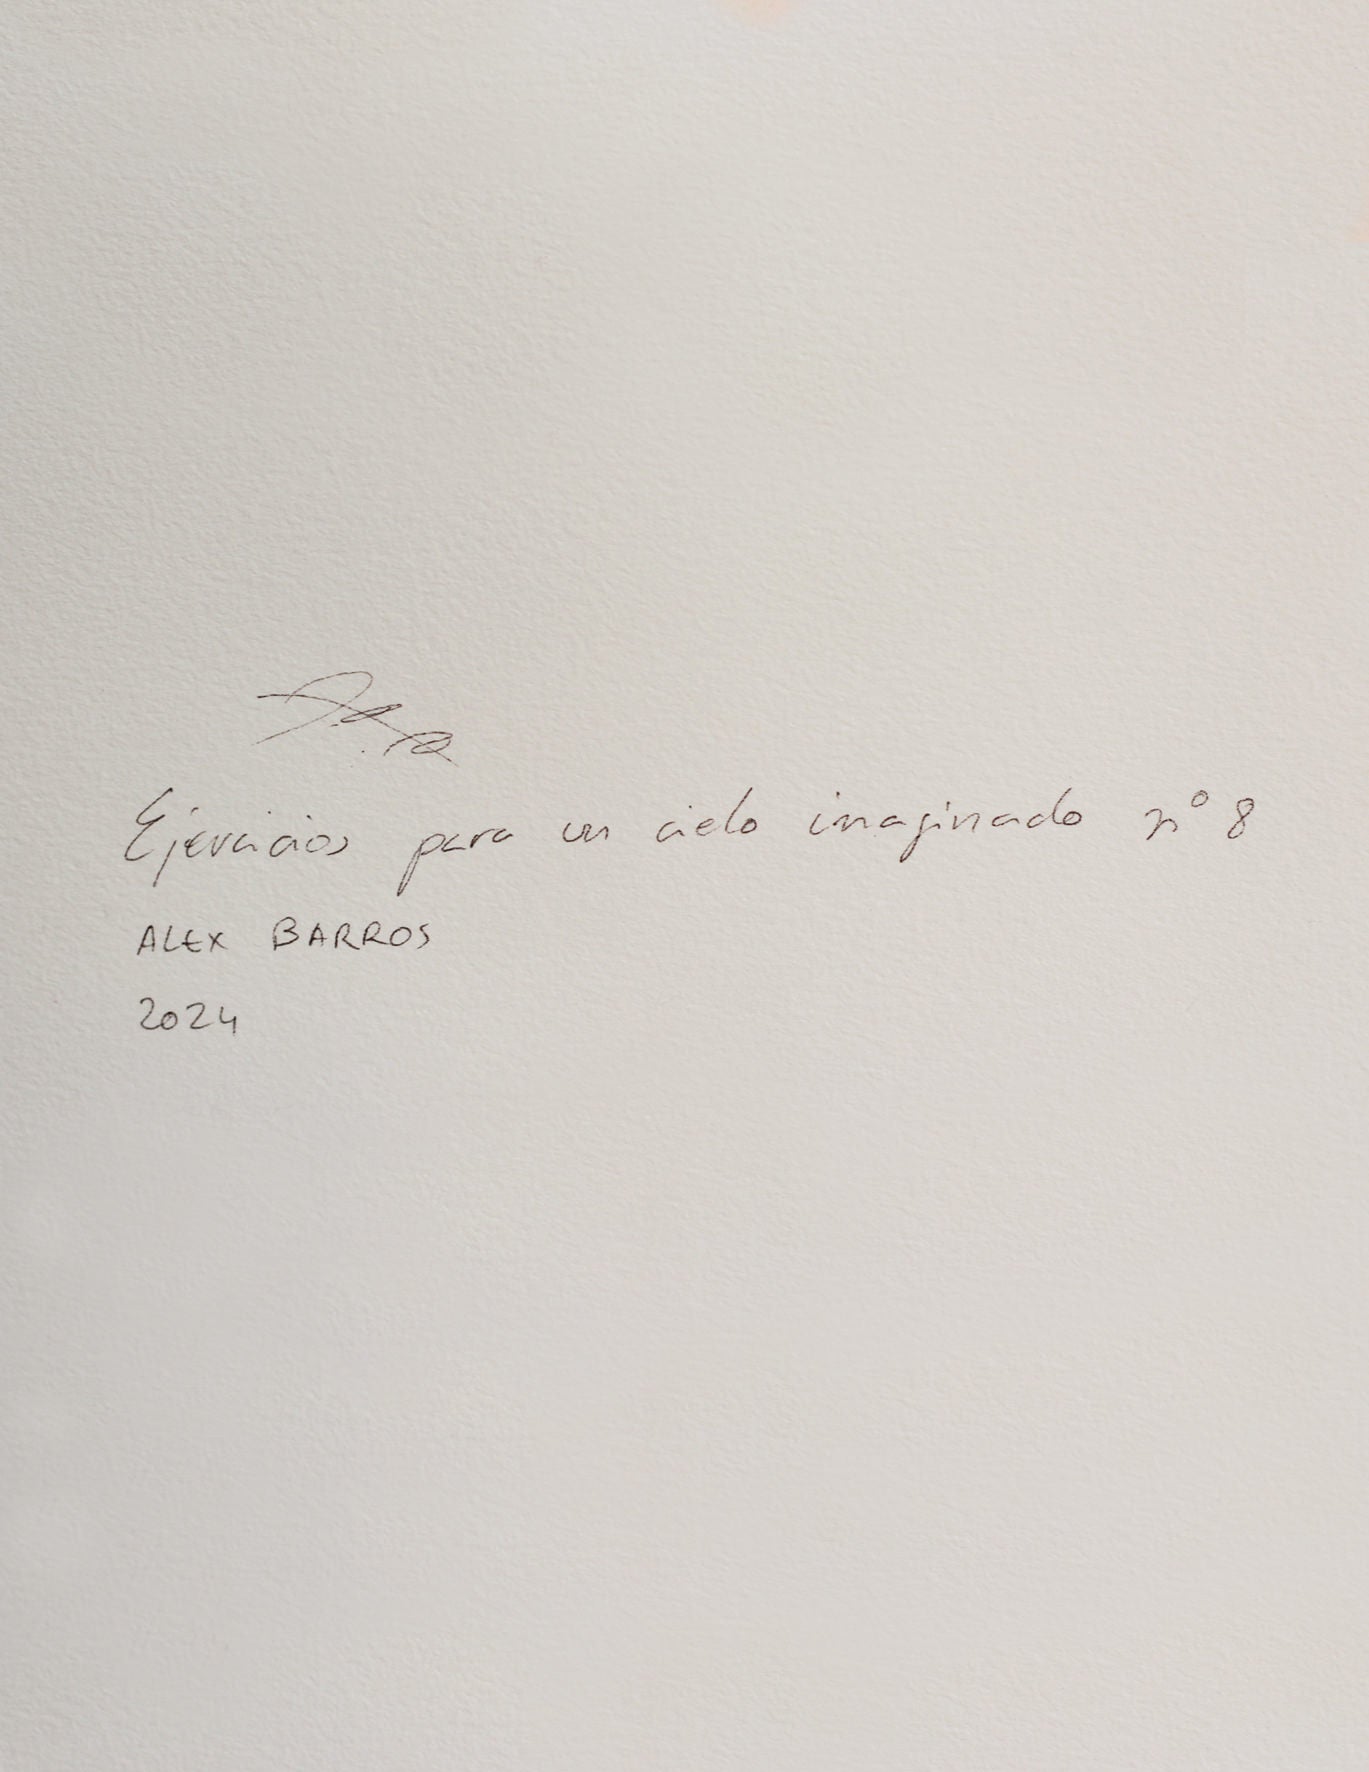 Ejercicios para un cielo imaginado nº 8
ALEX BARROS
2024